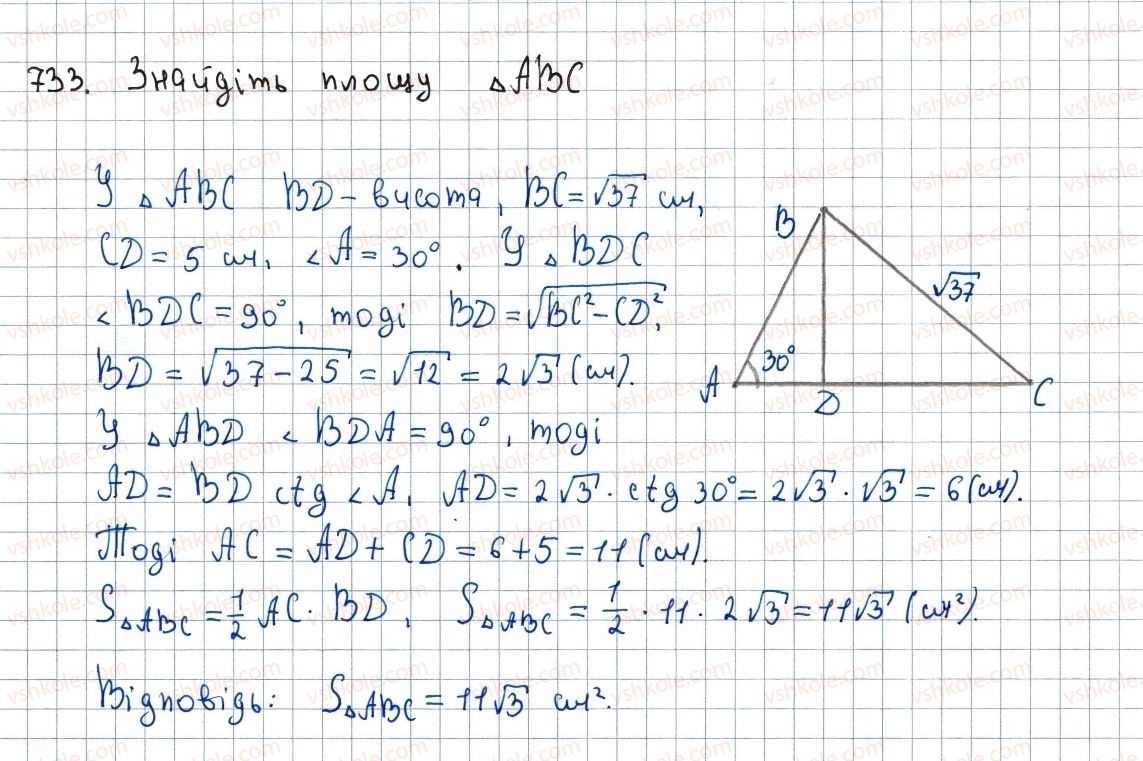 733. Знайдіть площу △ABC
У △ABC BD – висота, BC = √37 см,
CD = 5 см, <A = 30°. У △BDC
<BDC = 90°, тоді BD = √BC² – CD²,
BD = √37 – 25 = √12 = 2√3 (см).
У △ABD <BDA = 90°, тоді
AD = BD ctg <A, AD = 2√3 · ctg 30° = 2√3 · √3 = 6 (см).
Тоді AC = AD + CD = 6 + 5 = 11 (см).
S△ABC = 1/2 AC · BD, S△ABC = 1/2 · 11 · 2√3 = 11√3 (см²).
Відповідь: S△ABC = 11√3 см².
B
√37
30°
A
D
C
vshkole.com